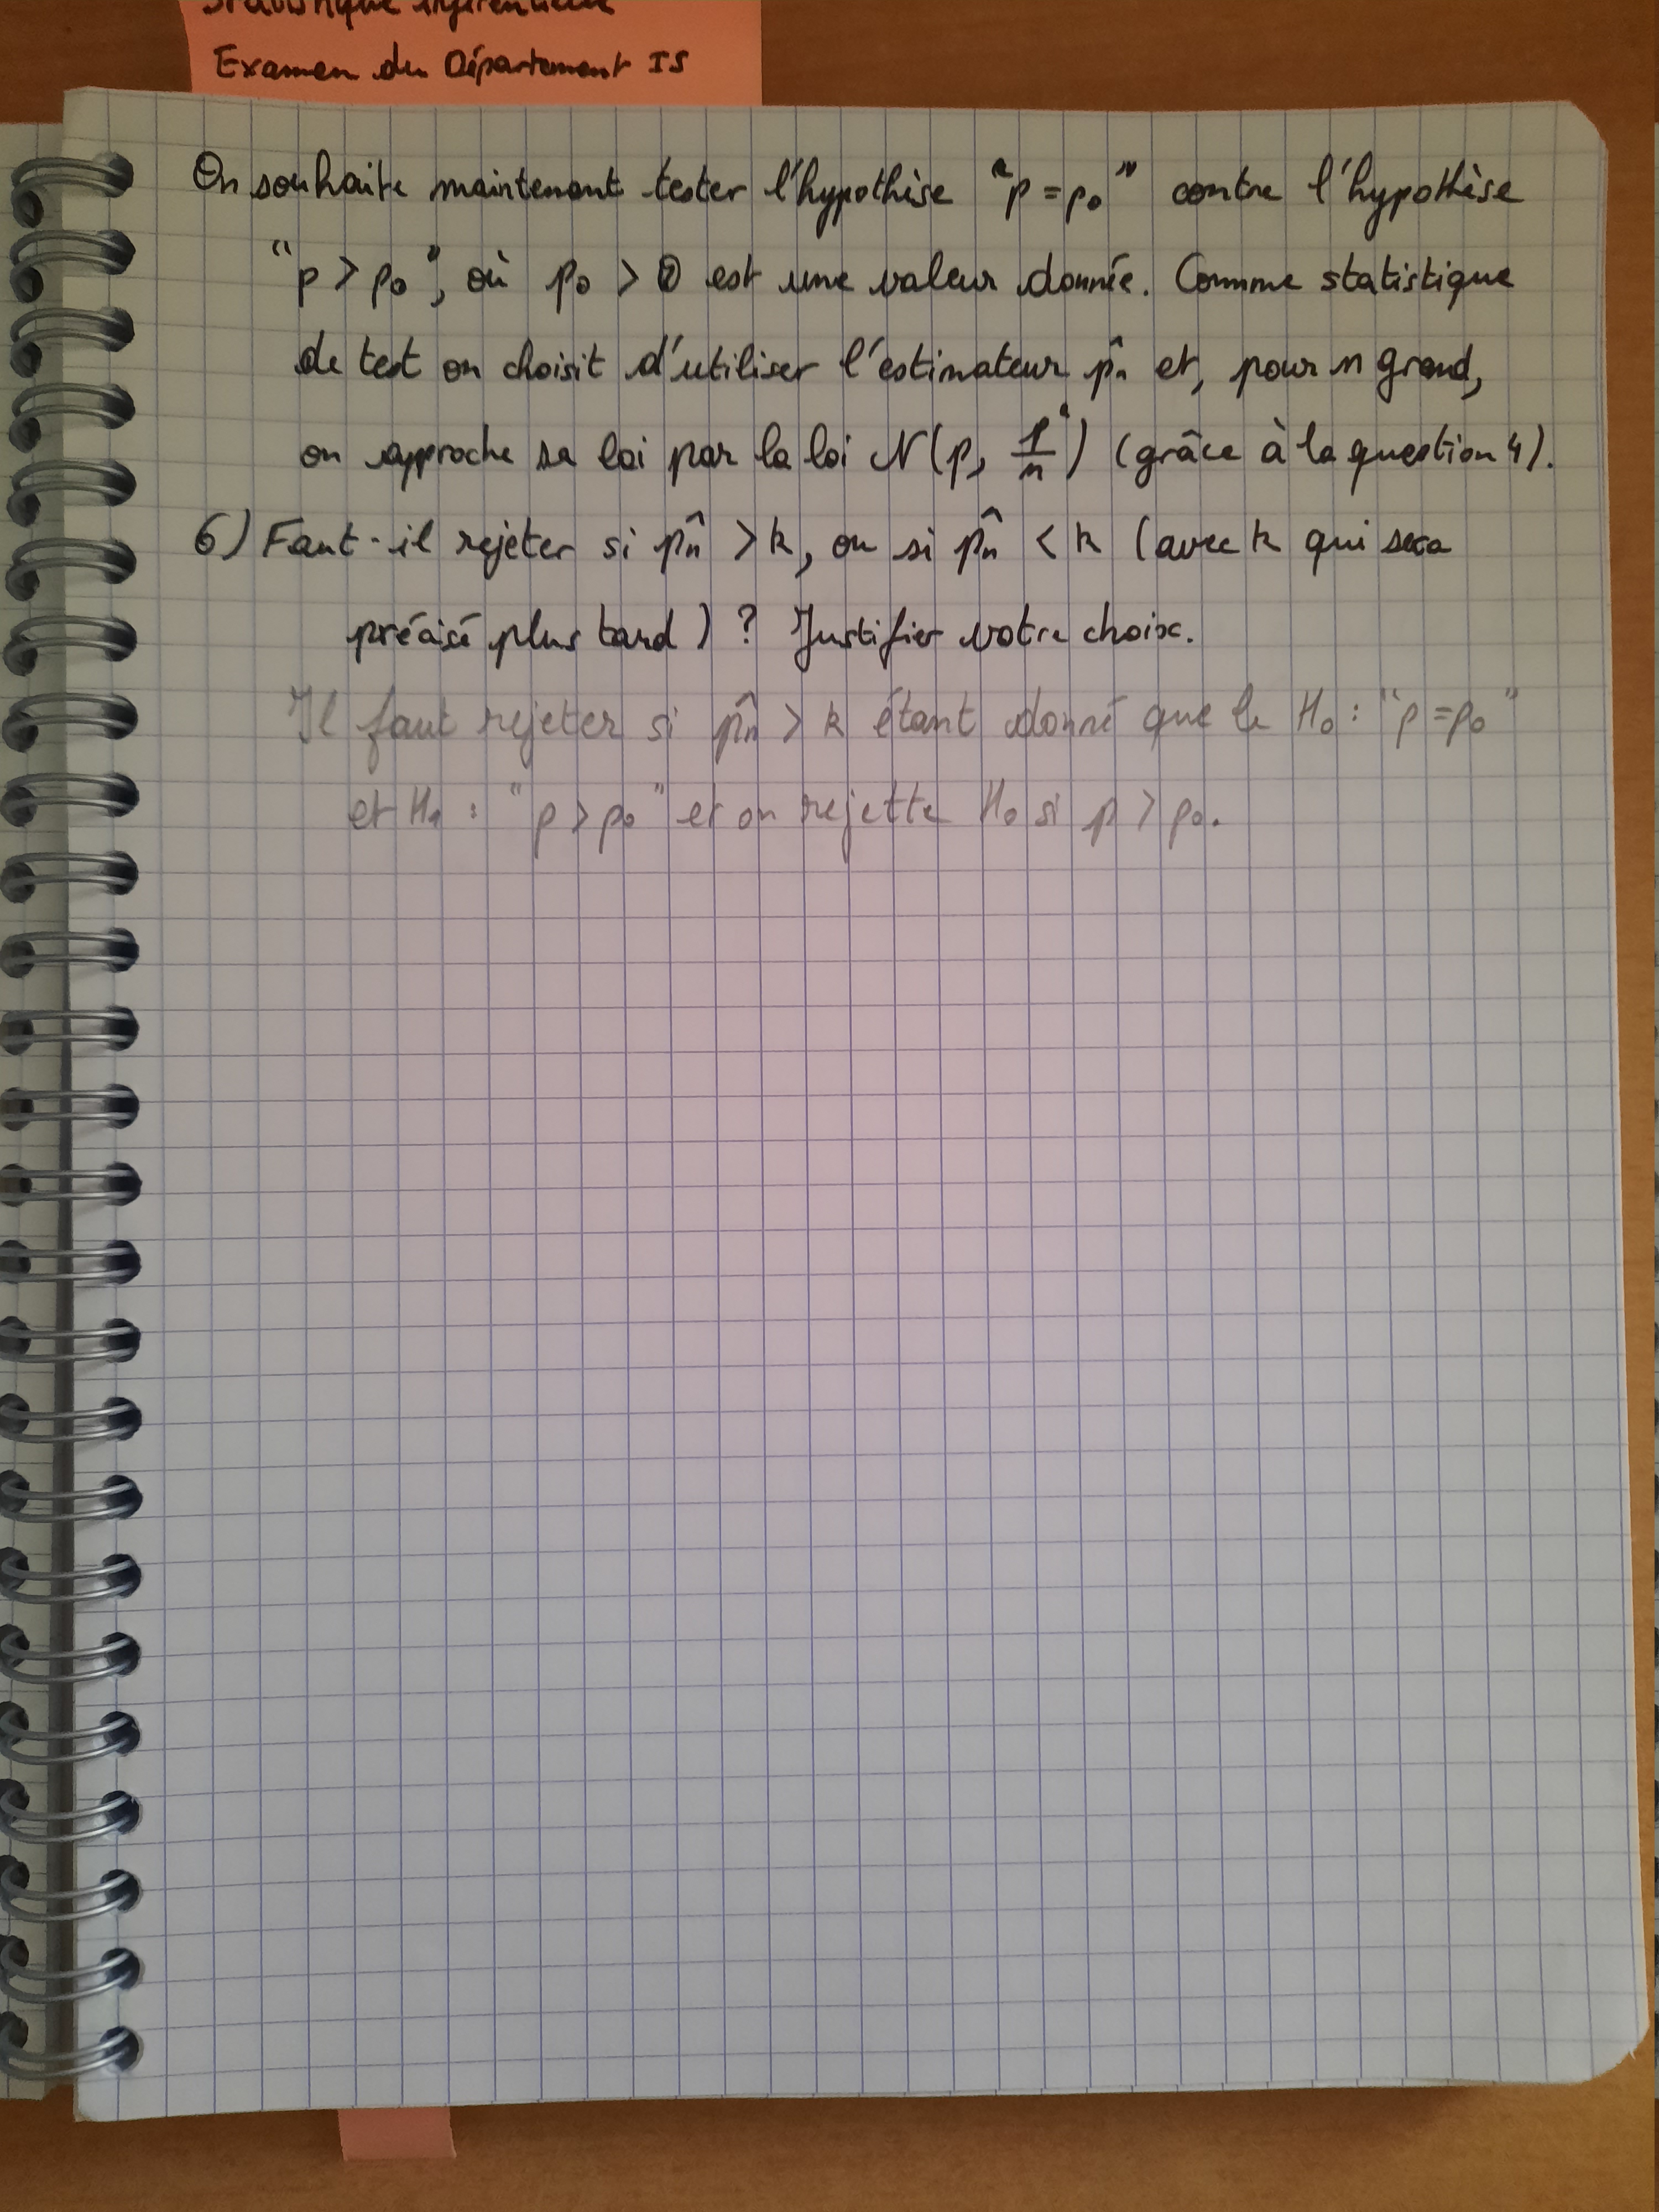 Statistique inférentielle
Examen du Département IS
On souhaite maintenant tester l'hypothèse "p = p₀" contre l'hypothèse
"p > p₀", où p₀ > 0 est une valeur donnée. Comme statistique
de test on choisit d'utiliser l'estimateur p̂ₙ et, pour n grand,
on approche sa loi par la loi N(p, p²/n) (grâce à la question 4).
6) Faut-il rejeter si p̂ₙ > k, ou si p̂ₙ < k (avec k qui sera
précisé plus tard) ? Justifier votre choix.
Il faut rejeter si p̂ₙ > k étant donné que le H₀ : "p = p₀"
et H₁ : "p > p₀" et on rejette H₀ si p > p₀.